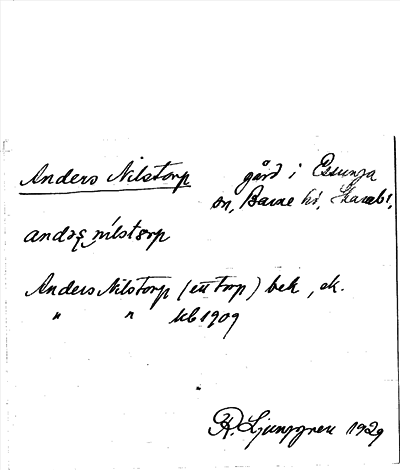 Anders Nilstorp gård i Essunga
sn, Barne hd, Skarab l,
andəṣ nílstɔrp
Anders Nilstorp (ett torp) bek, ek.
" " kb 1909
R. Ljunggren 1929